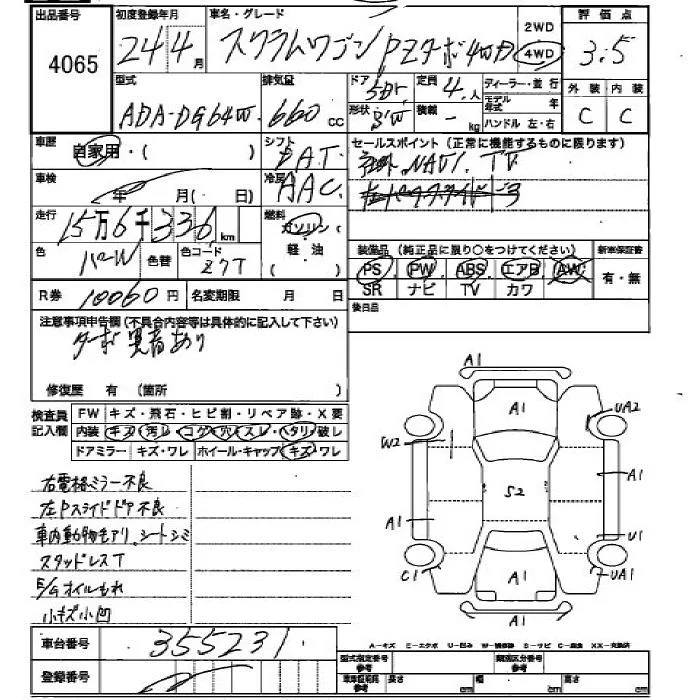 出品番号 初度登録年月 車名・グレード 2WD 4WD 評価点
4065 24年4月 スクラムワゴン PZターボ4WD 3.5
型式 排気量 ドア 5Dr 定員 4人 ディーラー・並行 外装 内装
ADA-DG64W 660cc 形状 5W 積載 - kg モデル年式 年 ハンドル 左・右 C C
車歴 自家用・( ) シフト FAT セールスポイント(正常に機能するものに限ります)
社外NAVI.TV
車検 年 月( 日) 冷房 AAC
走行 15万6千336km 燃料 ガソリン 軽油 ( )
色 パールW 色替 色コード Z7T
装備品(純正品に限り○をつけてください) 新車保証書
PS PW ABS エアB AW 有・無
SR ナビ TV カワ
R券 10060円 名変期限 月 日 後日品
注意事項申告欄(不具合内容等は具体的に記入して下さい)
ターボ異音あり
修復歴 有 (箇所 )
検査員記入欄 FW キズ・飛石・ヒビ割・リペア跡・X要
内装 キズ・汚レ・コゲ・穴・スレ・ヘタリ・破レ
ドアミラー キズ・ワレ ホイール・キャップ キズ・ワレ
右電格ミラー不良
左Pスライドドア不良
車内動物毛アリ、シートシミ
スタッドレスT
E/Gオイルもれ
小キズ小凹
A1
A1 UA2
W2
S2 A1
A1 U1
C1 A1 UA1
A1
車台番号 355231
A-キズ E-エクボ U-凹み W-補修跡 S-サビ C-腐食 XX-交換済
型式指定番号 参考 類別区分番号 参考
登録番号 車車証明用 参考 長さ cm 幅 cm 高さ cm